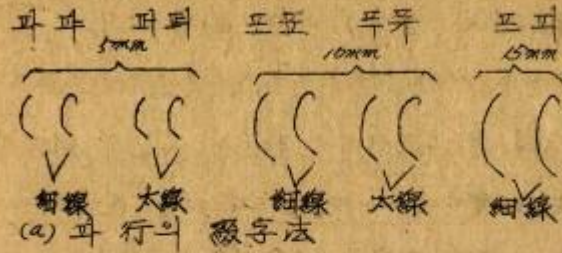 파 퍄 퍼 펴 포 표 푸 퓨 프 피
5mm 10mm 15mm
細線 太線 細線 太線 細線
(a) 파 行의 綴字法